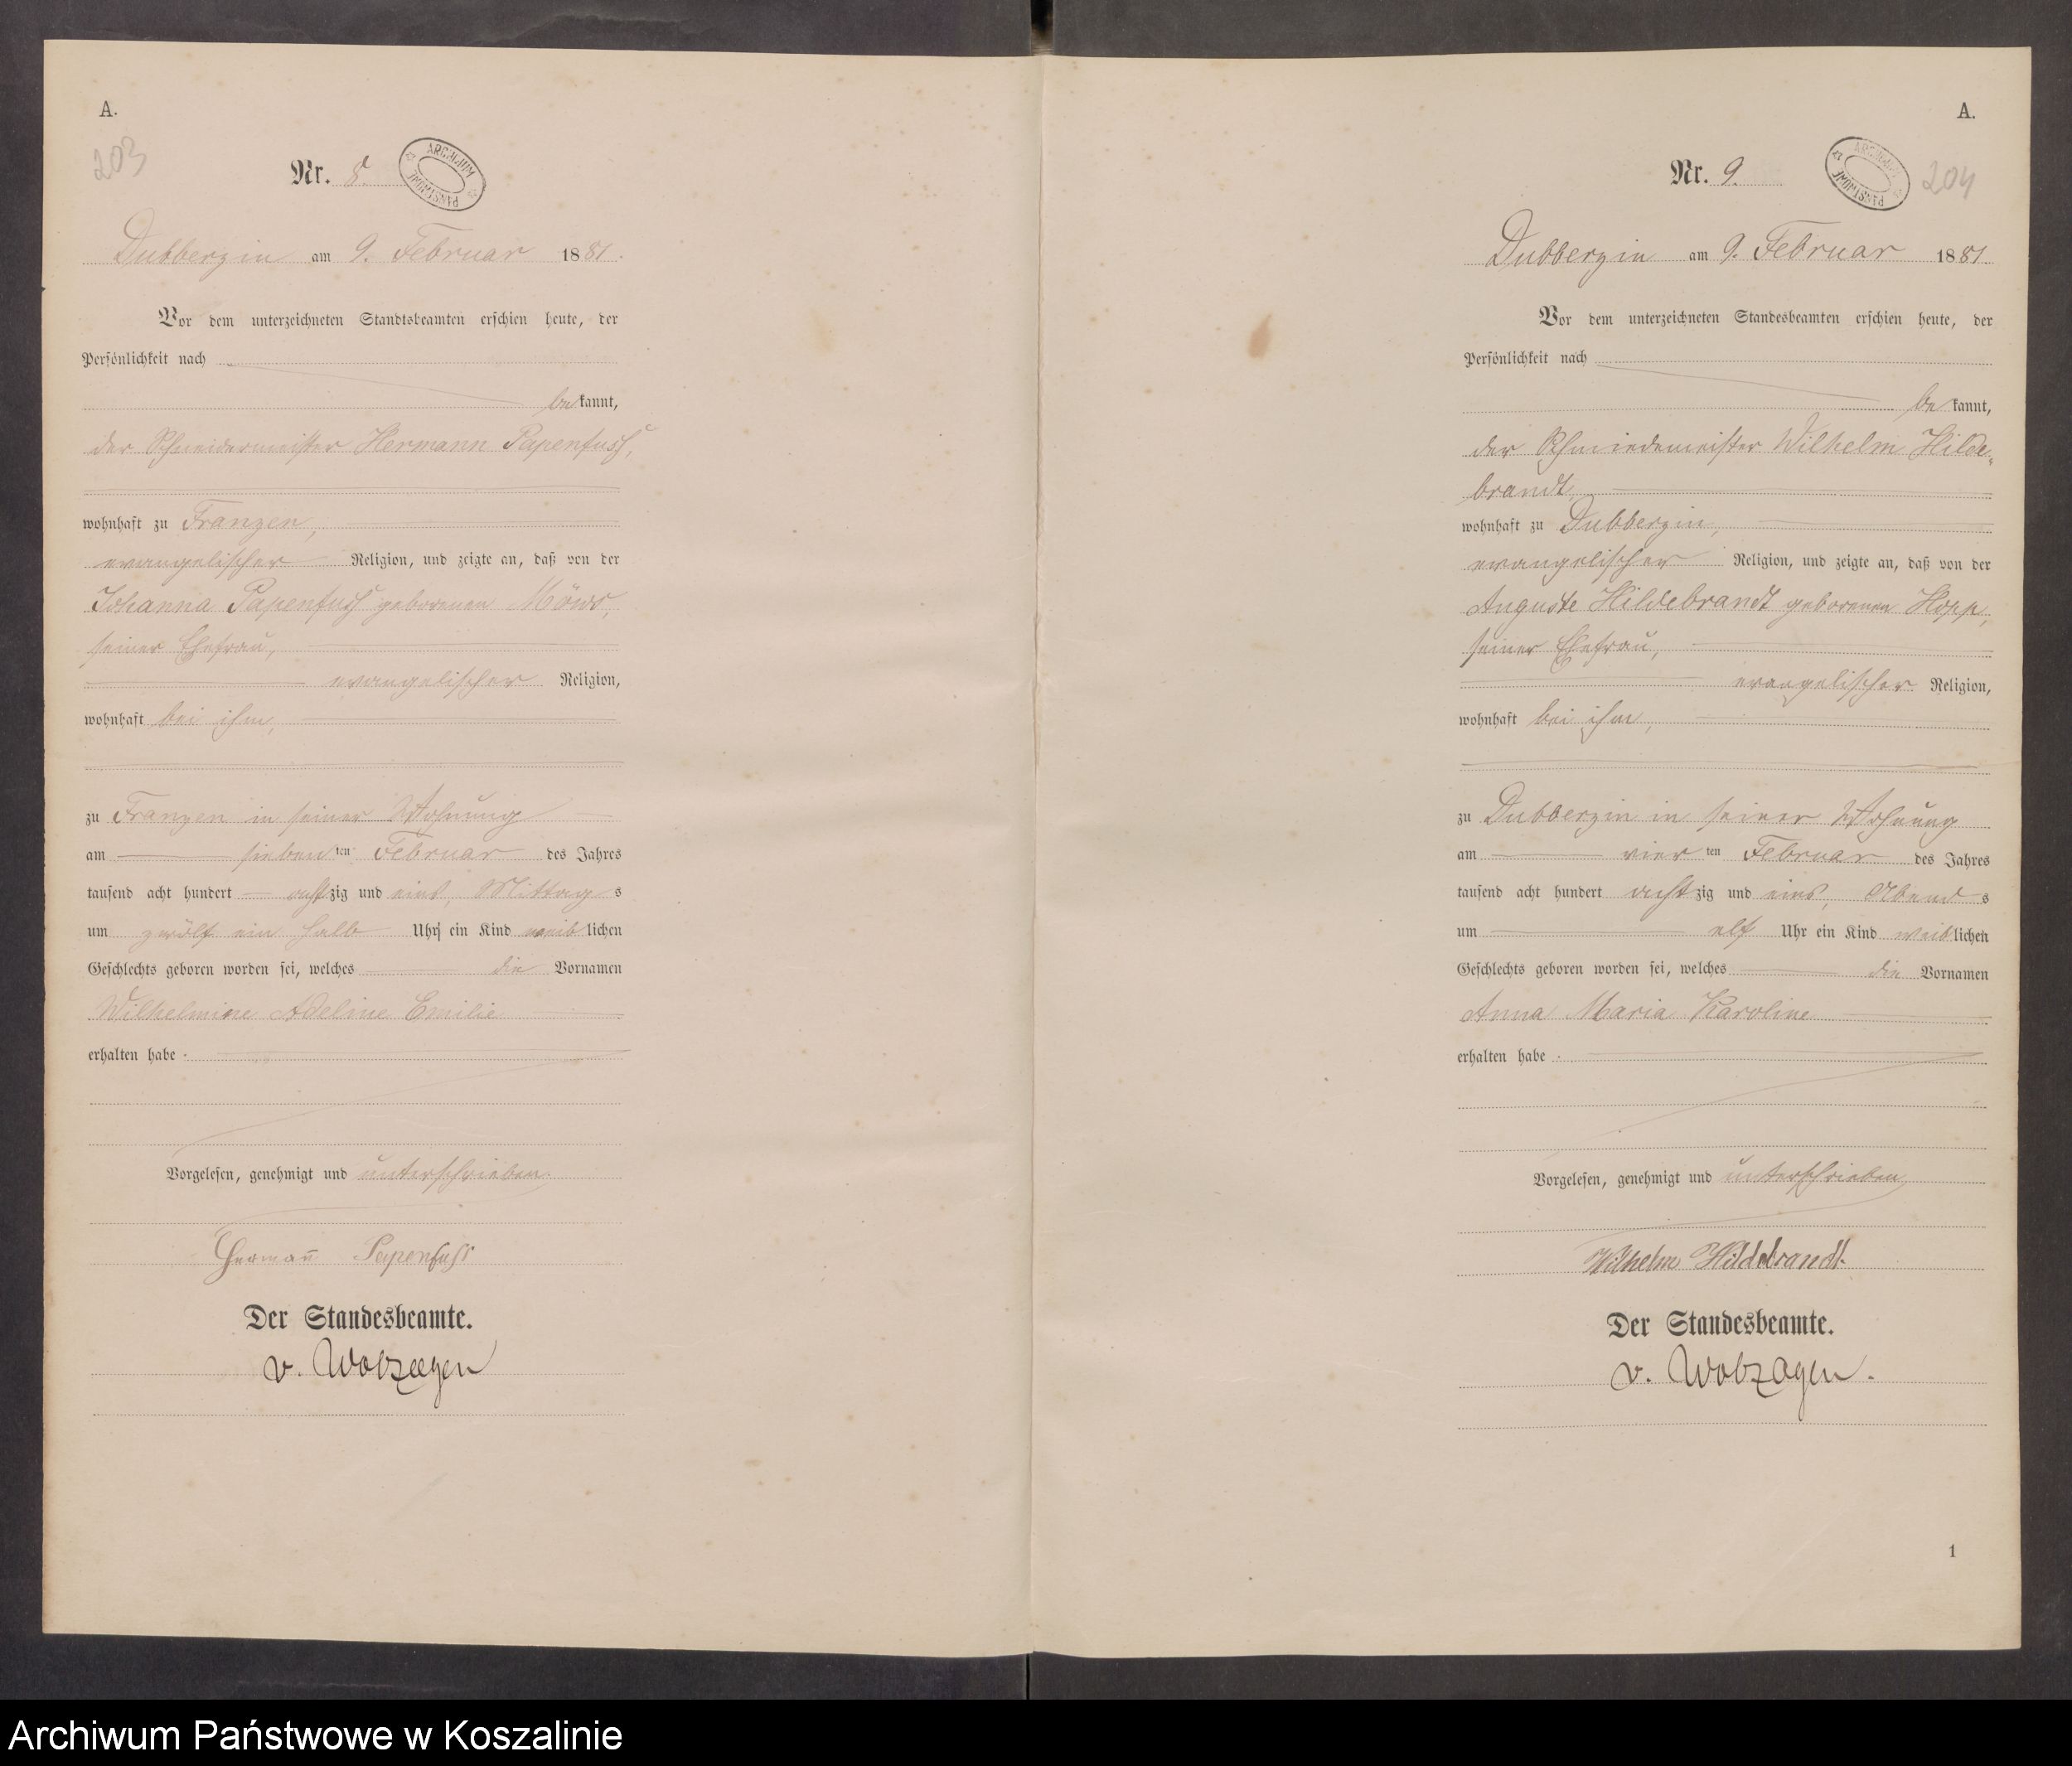 A.
203
Nr. 8.
ARCHIWUM PAŃSTWOWE
Dubberzin am 9. Februar 1881.
Vor dem unterzeichneten Standtsbeamten erschien heute, der
Persönlichkeit nach
bekannt,
der Schneidermeister Hermann Papenfuss,
wohnhaft zu Franzen,
evangelischer Religion, und zeigte an, daß von der
Johanna Papenfuss geborenen Möws,
seiner Ehefrau,
evangelischer Religion,
wohnhaft bei ihm,
zu Franzen in seiner Wohnung
am siebenten Februar des Jahres
tausend acht hundert achtzig und eins, Mittags
um zwölf ein halb Uhr ein Kind weiblichen
Geschlechts geboren worden sei, welches die Vornamen
Wilhelmine Adeline Emilie
erhalten habe.
Vorgelesen, genehmigt und unterschrieben
Hermann̄ Papenfuss
Der Standesbeamte.
v. Wolzogen
A.
204
Nr. 9.
ARCHIWUM PAŃSTWOWE
Dubberzin am 9. Februar 1881
Vor dem unterzeichneten Standesbeamten erschien heute, der
Persönlichkeit nach
bekannt,
der Schmiedemeister Wilhelm Hilde-
brandt,
wohnhaft zu Dubberzin,
evangelischer Religion, und zeigte an, daß von der
Auguste Hildebrandt geborenen Hopp,
seiner Ehefrau,
evangelischer Religion,
wohnhaft bei ihm,
zu Dubberzin in seiner Wohnung
am vierten Februar des Jahres
tausend acht hundert achtzig und eins, Abends
um elf Uhr ein Kind weiblichen
Geschlechts geboren worden sei, welches die Vornamen
Anna Maria Karoline
erhalten habe.
Vorgelesen, genehmigt und unterschrieben
Wilhelm Hildebrandt.
Der Standesbeamte.
v. Wolzogen.
1
Archiwum Państwowe w Koszalinie